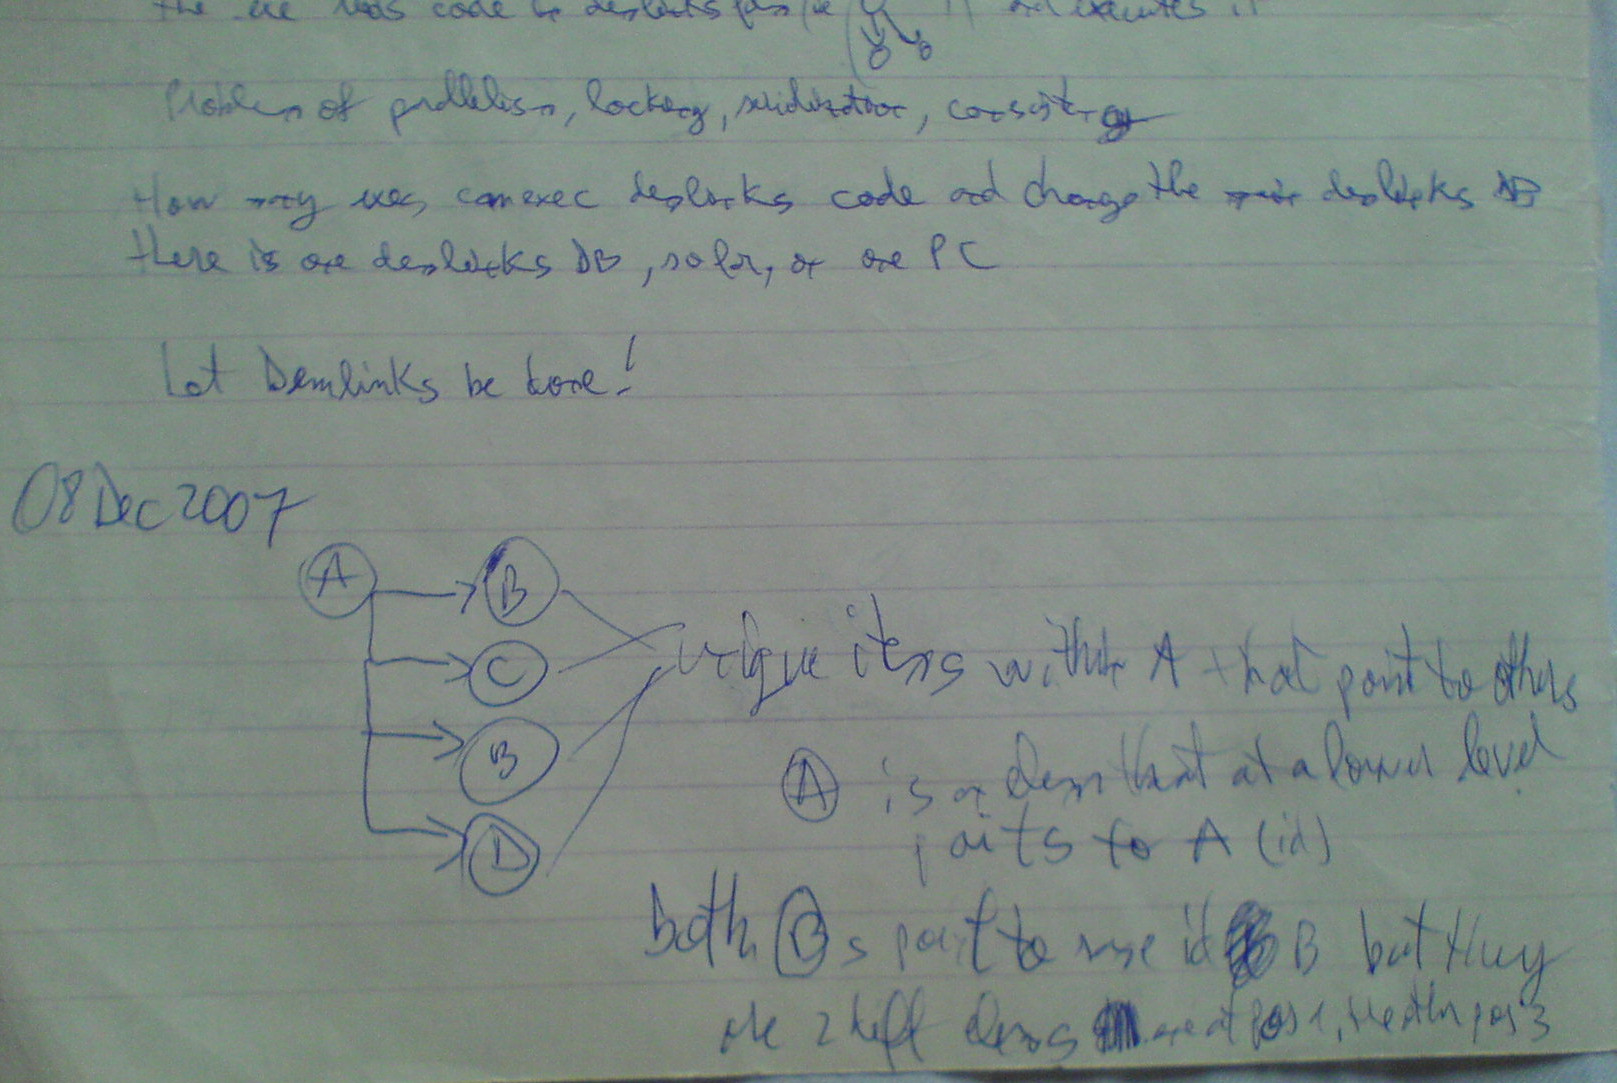 the code demlinks and executes it
Problem of parallelism, locking, consistency
How many can exec demlinks code and change the demlinks DB
there is one demlinks DB, so far, on one PC
Let Demlinks be done!
08Dec2007
A
B
C
B
D
unique items within A that point to others
A is an elem that at a lower level
points to A (id)
both B s point to same id B but they
are 2 diff elems one at pos 1, the other pos 3